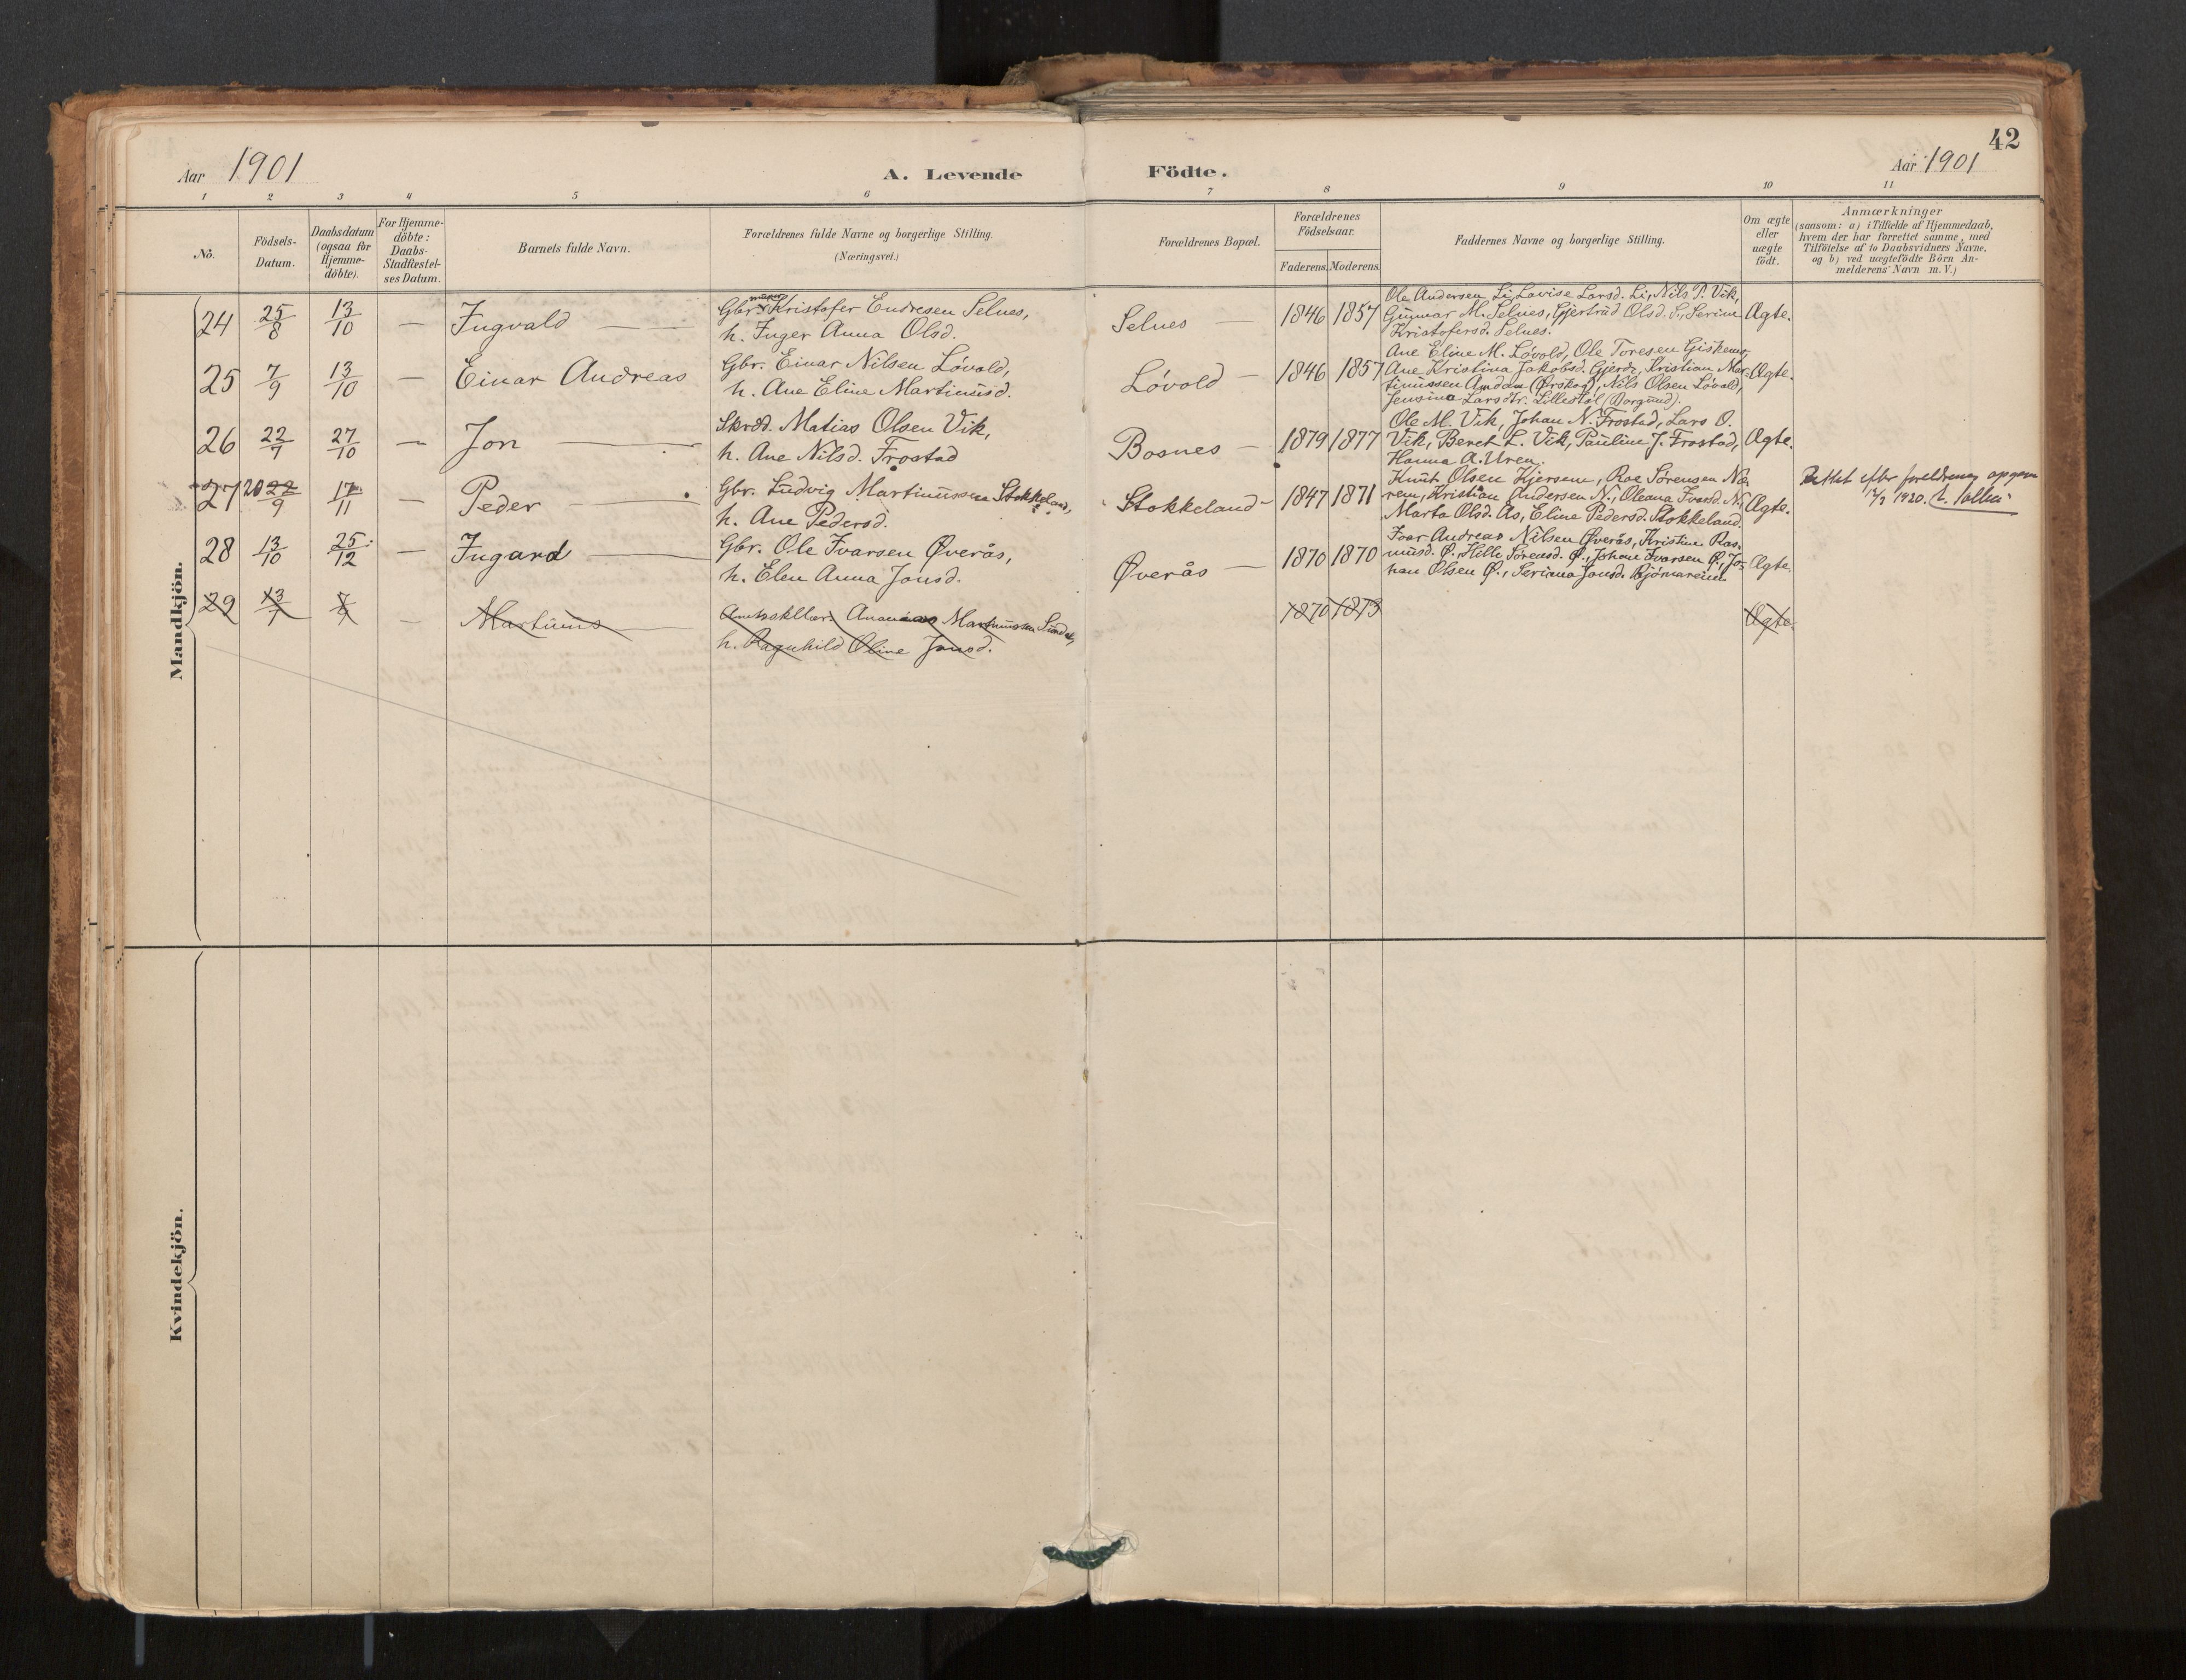 42
Aar 1901
A. Levende Födte.
Aar 1901
1 2 3 4 5 6 7 8 9 10 11
No.
Födsels-
Datum.
Daabsdatum
(ogsaa for
Hjemme-
döbte).
For Hjemme-
döbte:
Daabs-
Stadfæstel-
ses Datum.
Barnets fulde Navn.
Forældrenes fulde Navne og borgerlige Stilling.
(Næringsvei.)
Forældrenes Bopæl.
Forældrenes
Födselsaar.
Faderens. Moderens.
Faddernes Navne og borgerlige Stilling.
Om ægte
eller
uægte
födt.
Anmærkninger
(saasom: a) i Tilfælde af Hjemmedaab,
hvem der har forrettet samme, med
Tilföielse af to Daabsvidners Navne.
og b) ved uægtefödte Börn An-
melderens Navn m. V.)
Mandkjön.
24 25/8 13/10 — Ingvald — Selnes — 1846 1857 Ægte.
Gbr. Kristofer Endresen Selnes,
h. Inger Anna Olsd.
Ole Andersen Li, Lovise Larsd. Li, Nils P. Vik,
Gunnar M. Selnes, Gjertrud Olsd. S., Serine
Kristofersd. Selnes.
25 7/9 13/10 — Einar Andreas Løvold — 1846 1857 Ægte.
Gbr. Einar Nilsen Løvold,
h. Ane Eline Martinusd.
Ane Eline M. Løvold, Ole Toresen Giskemo,
Ane Kristina Jakobsd. Gjerde, Kristian Mar-
tinussen Amdam (Ørskog), Nils Olsen Løvold,
Jensina Larsdtr. Lillestøl (Borgund).
26 22/7 27/10 — Jon — Bosnes — 1879 1877 Ægte.
Skræd. Matias Olsen Vik,
h. Ane Nilsd. Frostad
Ole M. Vik, Johan N. Frostad, Lars O.
Vik, Beret L. Vik, Pauline J. Frostad,
Hanna A. Uren.
27 20 22/9 17/11 — Peder — Stokkeland — 1847 1871 Ægte.
Gbr. Ludvig Martinussen Stokkeland,
h. Ane Pedersd.
Knut Olsen Kjersem, Roe Sørensen Næ-
rem, Kristian Andersen N., Oleana Ivarsd. N.,
Marta Olsd. Ås, Eline Pedersd. Stokkeland.
Rettet efter foreldrenes opgave
1920.
28 13/10 25/12 — Ingard — Øverås — 1870 1870 Ægte.
Gbr. Ole Ivarsen Øverås,
h. Elen Anna Jonsd.
Ivar Andreas Nilsen Øverås, Kristine Ras-
musd. Ø., Hille Sørensd. Ø., Johan Ivarsen Ø., Jo-
han Olsen Ø., Seriana Jonsd. Bjørnareim.
29 13/7 — Martinus — 1870 1873 Ægte.
Martinussen
h. Ragnhild Oline Jonsd.
Kvindekjön.